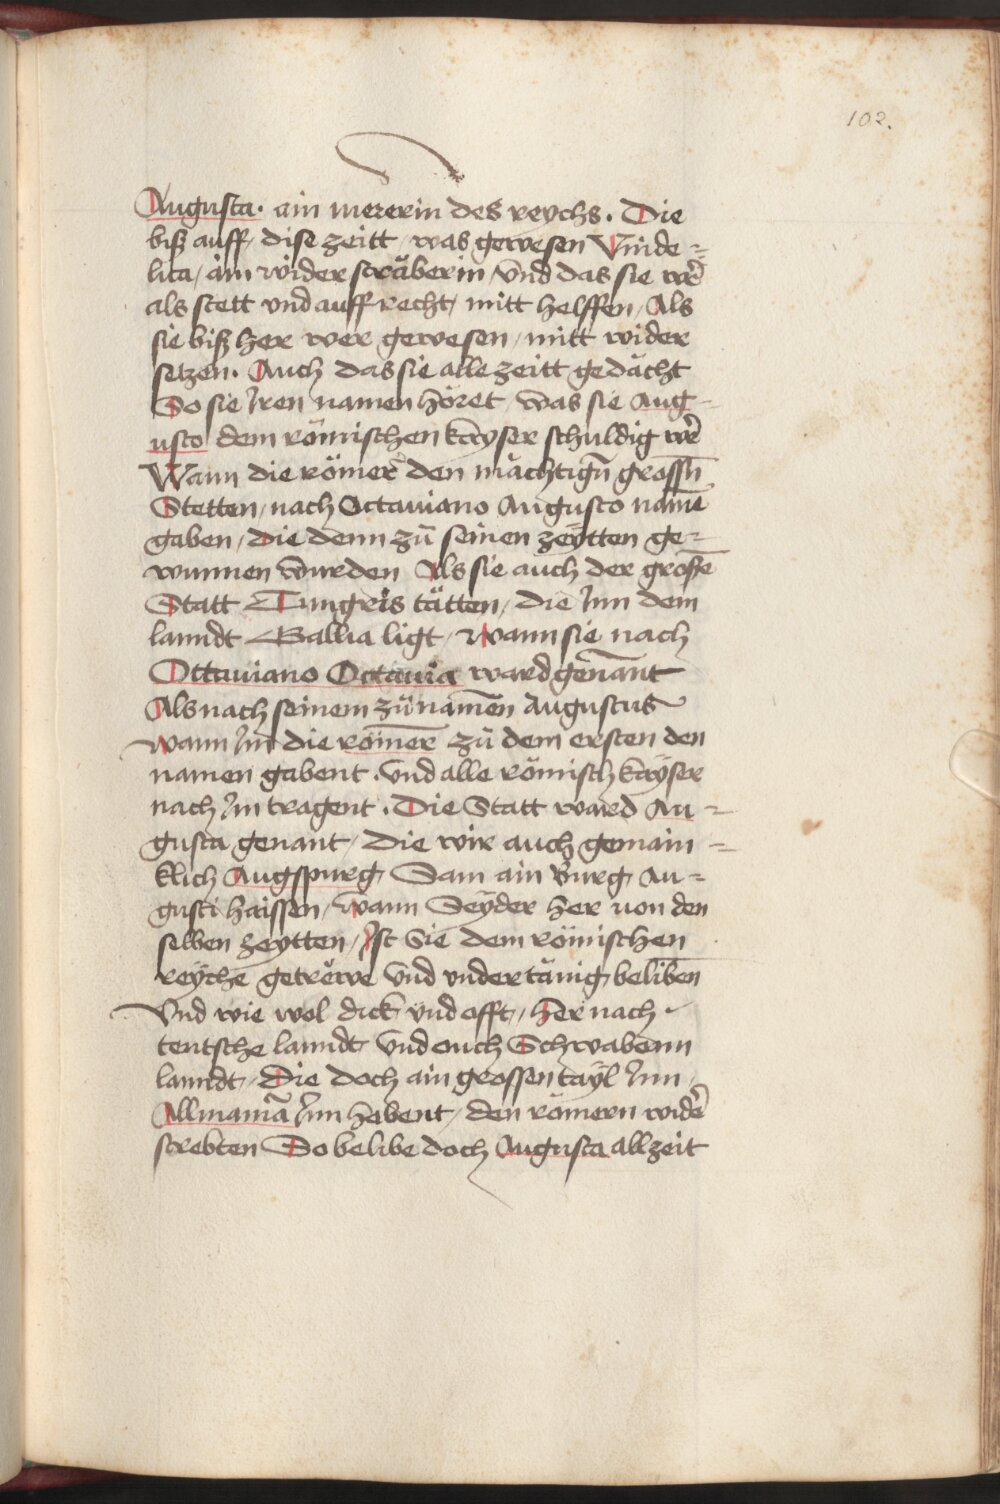 102.
Augusta. ain mererin des reychs. Die
biß auff, dise zeitt, was gewesen Vinde=
lica, ain wider sträberin Vnd das sie wer̄
als stett vnd auff recht, mitt helffen, Als
sie biß her wer gewesen, mitt wider
setzen. Auch das sie alle zeitt gedächt
So sie Iren namen höret, was sie Aug-
usto dem römischen kayser schuldig wer̄
Wann die römer den mächtign̄ grossn̄
Stetten, nach Octauiano Augusto namē
gaben, die denn zu̍ seinen zeÿtten ge=
wunnen wurden Als sie auch der grossē
Statt Tungris tätten, die Inn dem
lanndt Gallia ligt, wann sie nach
Ottauiano Octauia ward genan̄t
Als nach seinem zu̍namen̄ Augustus
wann Im die römer̄ zu̍ dem ersten den
namen gabent. Vnd alle römisch kayser
nach Im tragent. Die Statt ward Au=
gusta genant, die wir auch gemain=
klich Augspurg, Sam ain Burg, Au=
gusti haissen, wann Seÿder her von den
selben zeytten, Ist sie dem römischen
reÿche getrëwe Vnd vndertänig, beliben̄
Vnd wie wol dick vnd offt, her nach.
teutsche lanndt vnd ouch Schwabenn
lanndt, Die doch ain grossen tayl Inn,
Allmaniā Inn habent, den römern widē
strebten So belibe doch Augusta allzeit